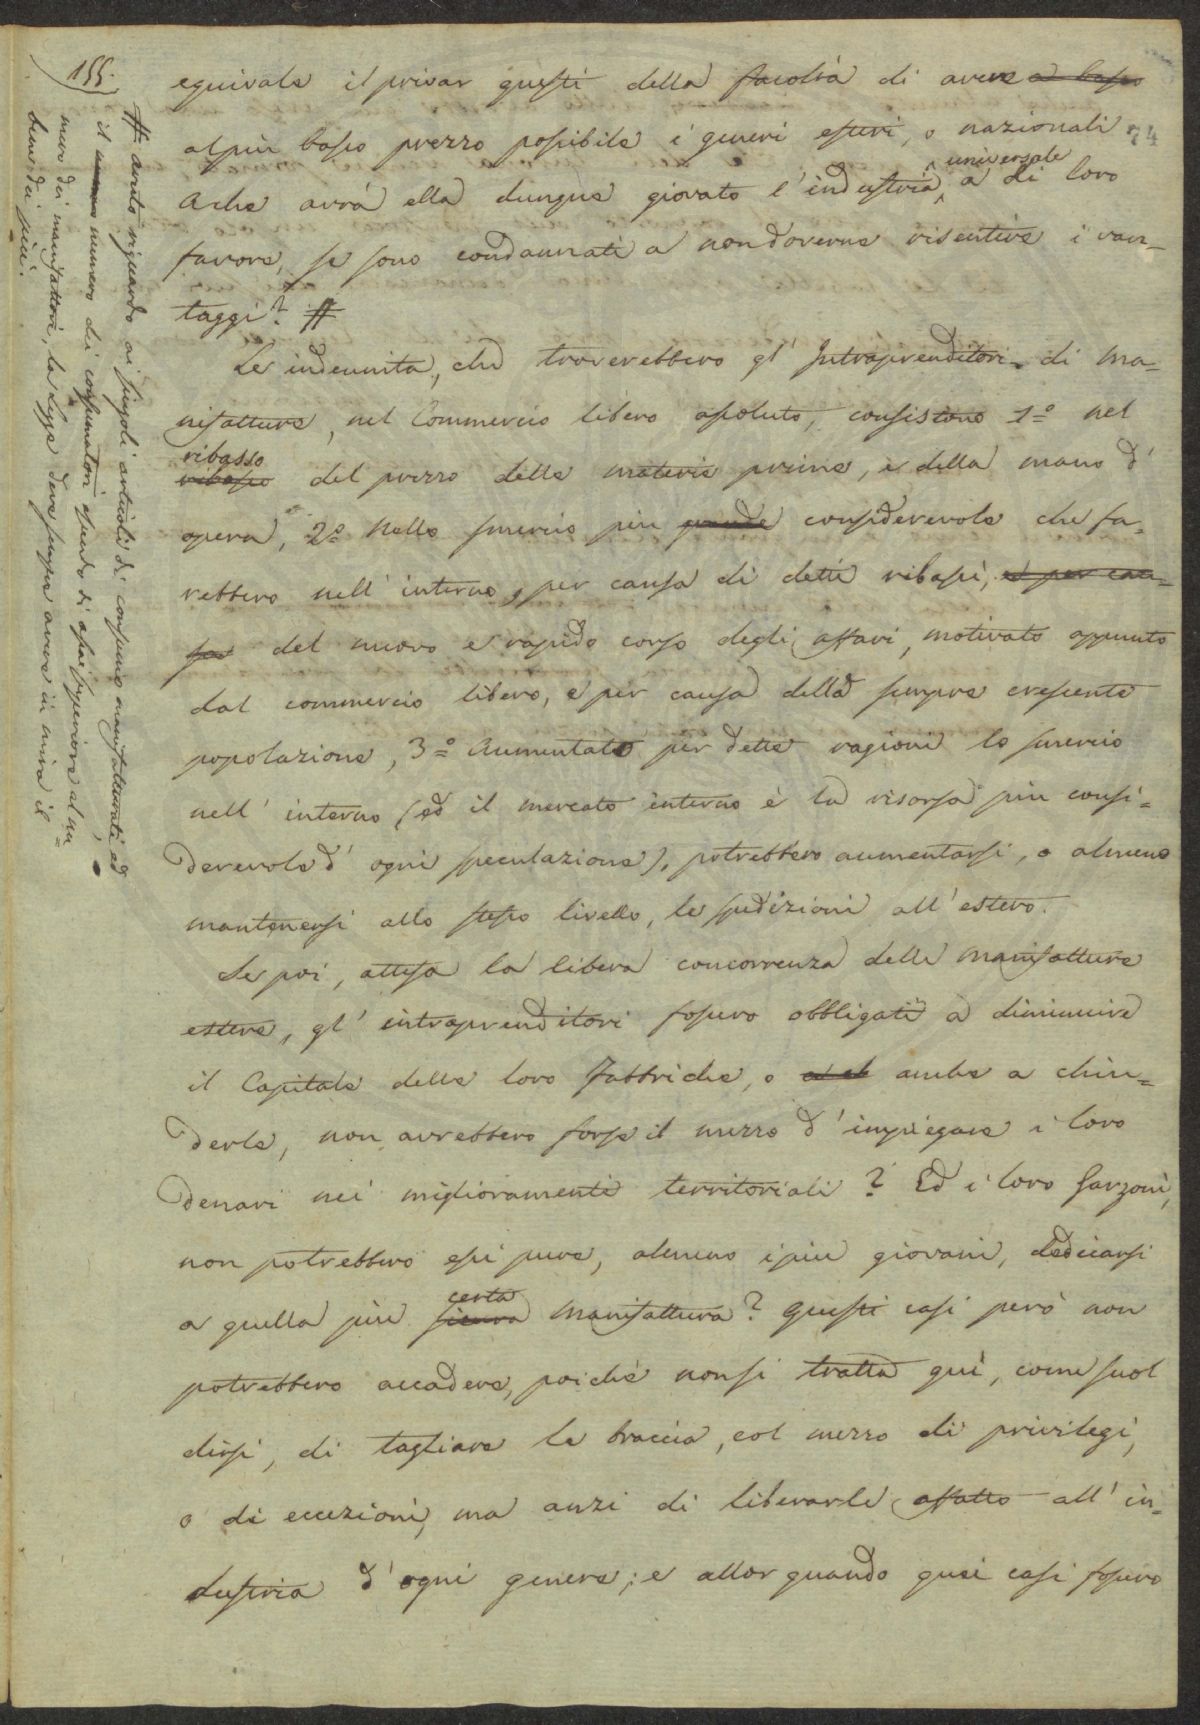 155.
74
equivale il privar questi della facoltà di avere a basso
al più basso prezzo possibile i generi esteri, o nazionali
A che avrà ella dunque giovato l'industria universale, a di loro
favore, se sono condannati a non doverne risentire i van-
taggi? #
Le indennita, che troverebbero gl' Intraprenditori di ma-
nifatture, nel Commercio libero assoluto, consistono 1º nel
ribasso
ribasso del prezzo delle materie prime, e della mano d'
opera, 2º Nello smercio più grande considerevole che fa-
rebbero nell' interno, per causa di detti ribassi, e per cau-
sa del nuovo e rapido corso degli affari, motivato appunto
dal commercio libero, e per causa della sempre crescente
popolazione, 3º Aumentato per dette ragioni lo smercio
nell' interno (ed il mercato interno è la risorsa più consi=
derevole d' ogni speculazione), potrebbero aumentarsi, o almeno
mantenersi allo stesso livello, le spedizioni all' estero.
Se poi, attesa la libera concorrenza delle Manifatture
estere, gl' intraprenditori fossero obbligati a diminuire
il Capitale delle loro Fabbriche, o anche a chiu=
derle, non avrebbero forse il mezzo d' impiegare i loro
denari nei miglioramenti territoriali? Ed i loro Garzoni,
non potrebbero essi pure, almeno i più giovani, dedicarsi
certa
a quella più sicura Manifattura? Questi casi però non
potrebbero accadere, poiché non si tratta quì, come suol
dirsi, di tagliare le braccia, col mezzo di privilegi,
o di eccezioni, ma anzi di liberarle affatto all' in-
dustria d' ogni genere; e allor quando quei casi fossero
# avuto riguardo ai singoli articoli di consumo manifatturati ed
il numero dei consumatori essendo di assai superiore al nu=
mero dei manifattori, la Legge deve sempre avere in mira il
bene dei più.